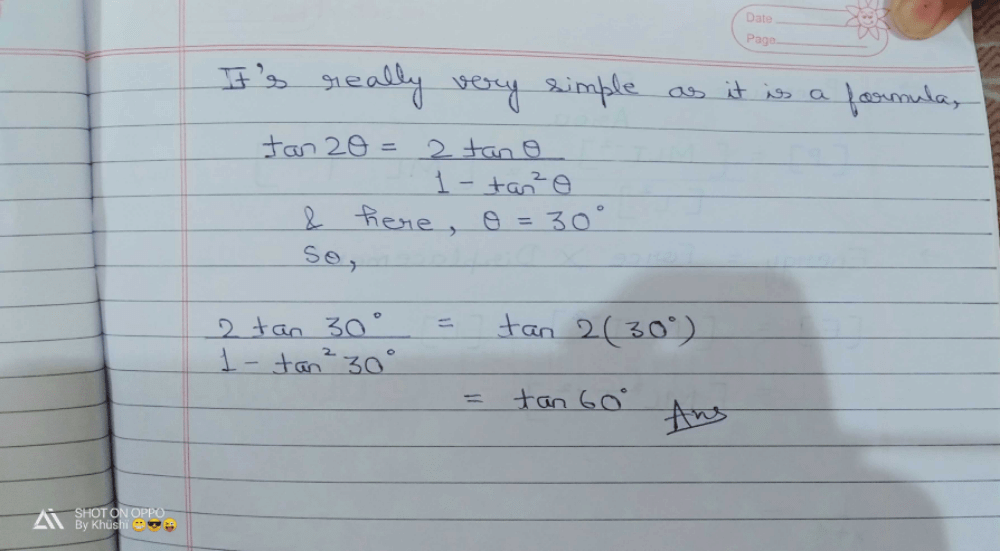 Date
Page
It's really very simple as it is a formula,
tan 2θ = 2 tan θ
1 - tan² θ
& here, θ = 30°
So,
2 tan 30° = tan 2(30°)
1 - tan² 30°
= tan 60° Ans
SHOT ON OPPO
By Khushi 😁😎😜